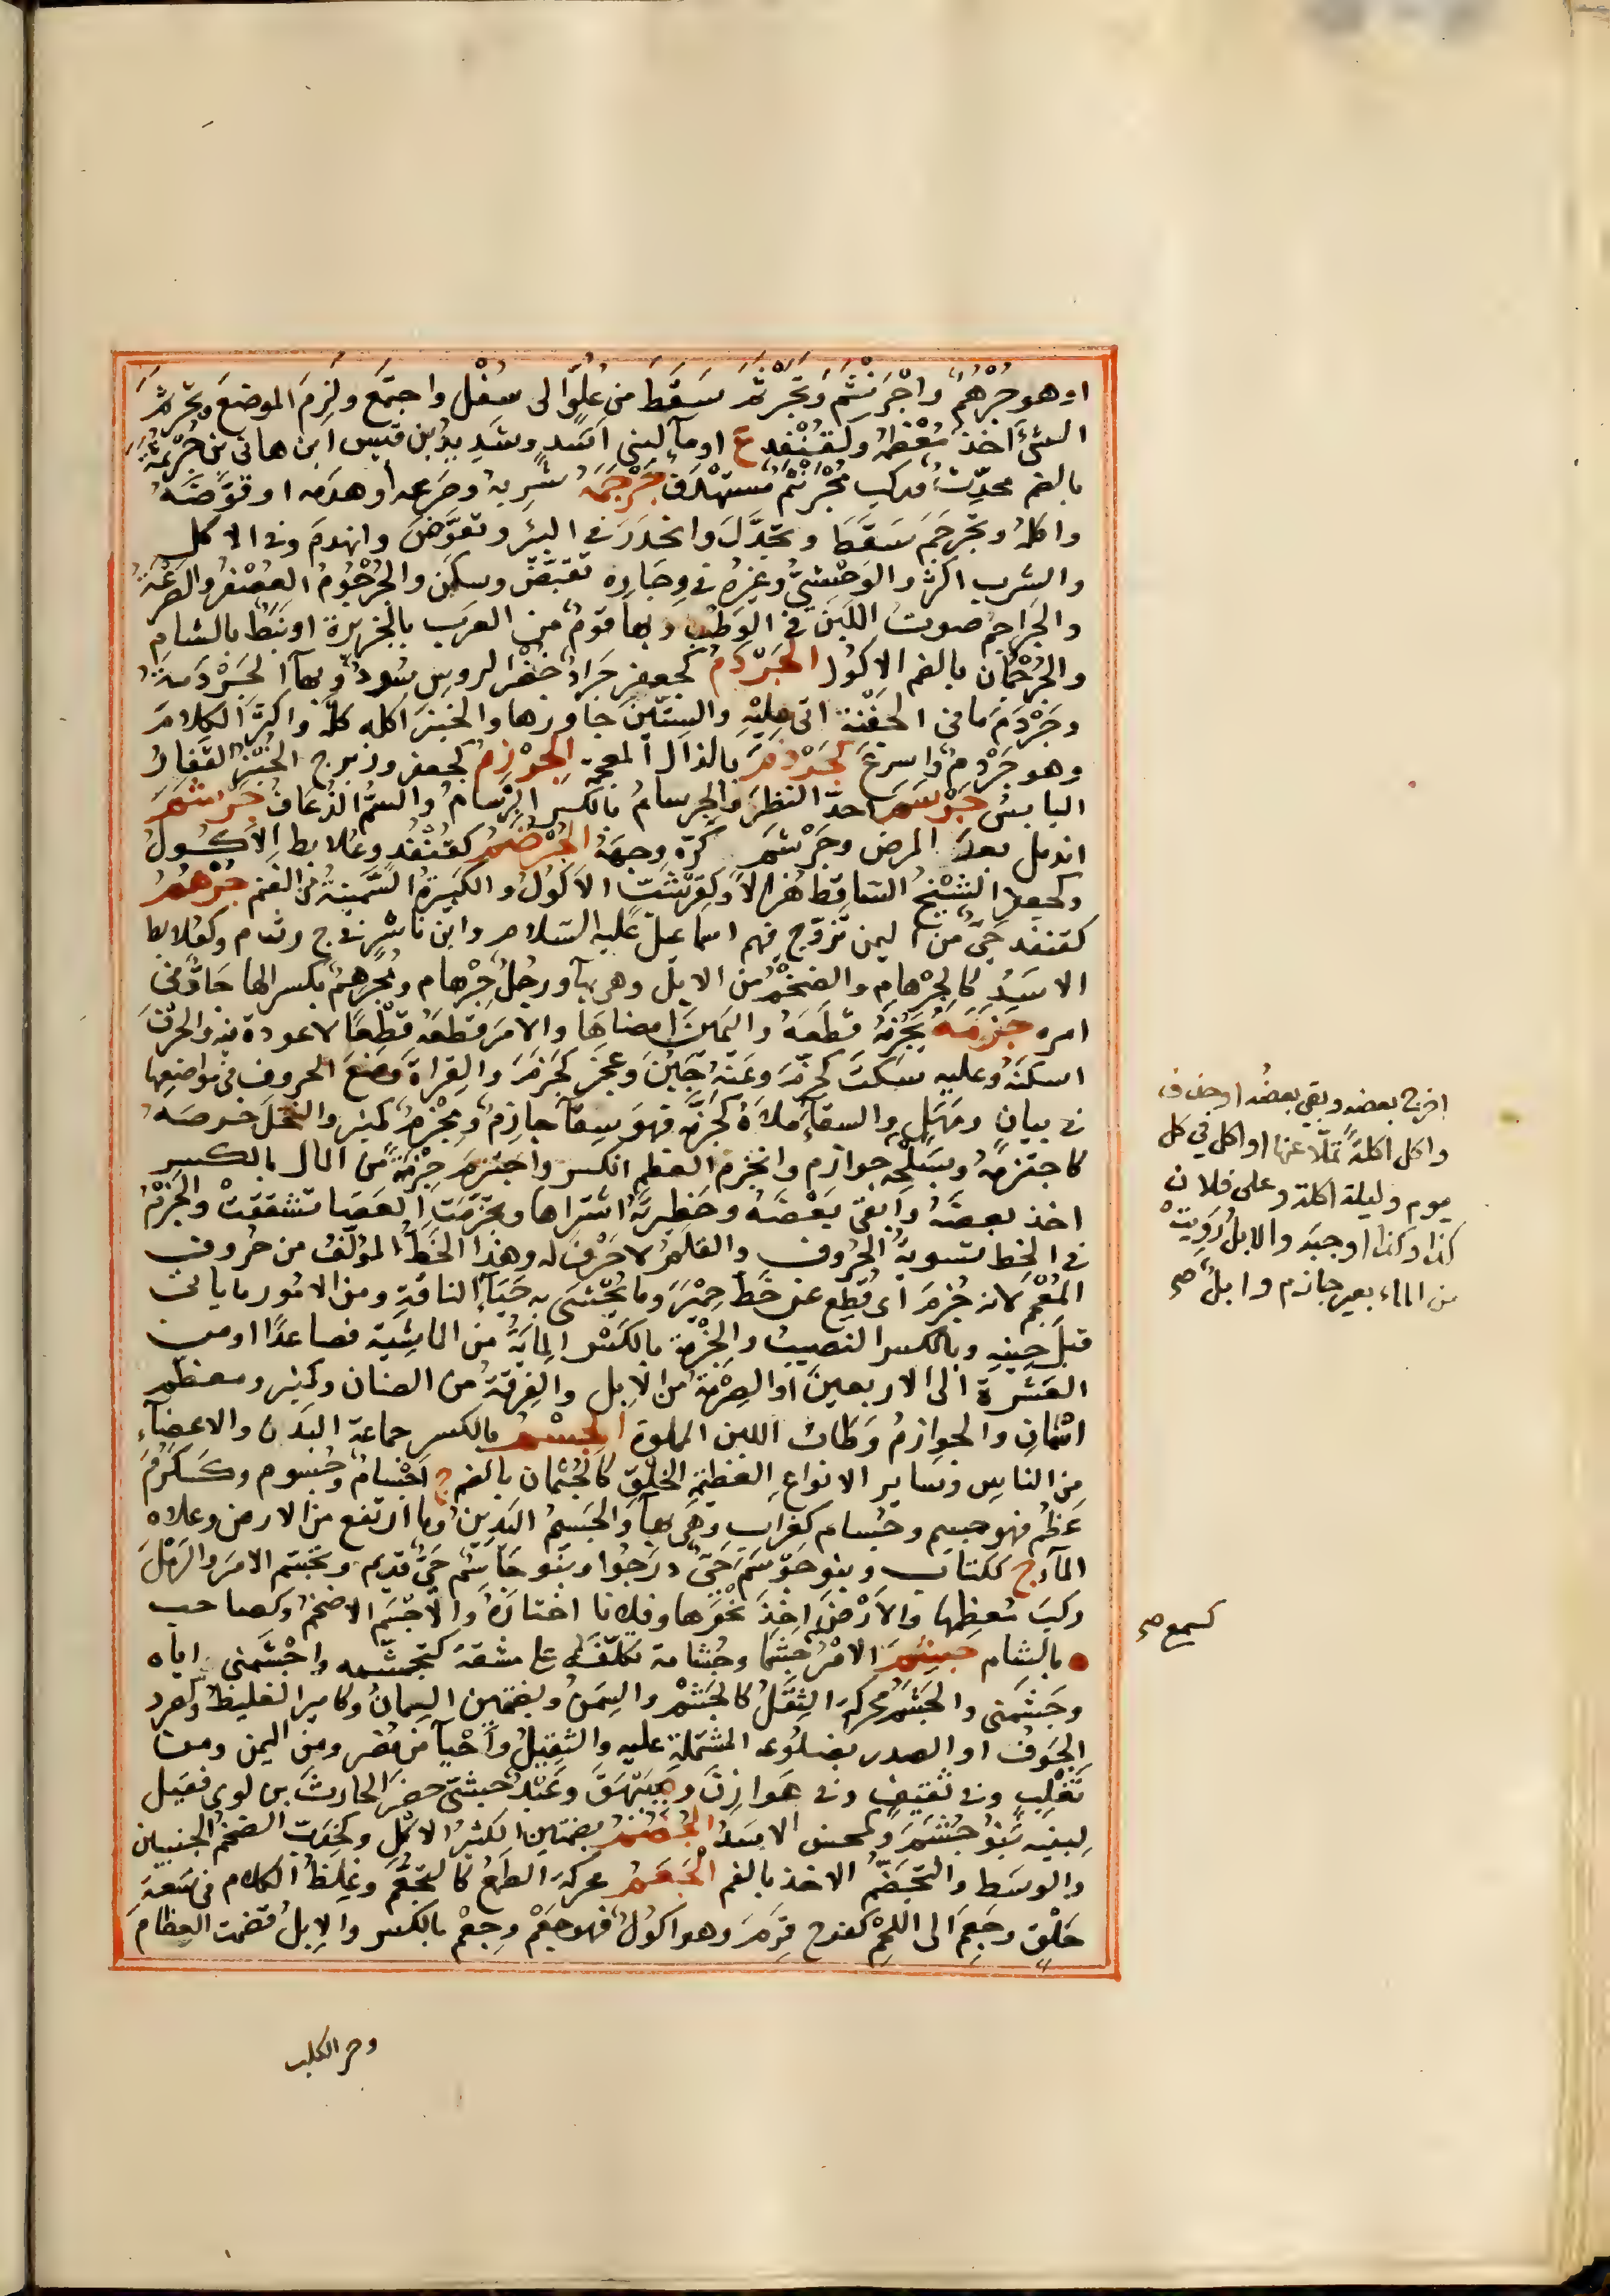 او هو جُرْهُمٌ واجْرَنْثَمَ وتَجَرْثَمَ سَقَطَ من عُلِوٍّ الى سُفْلٍ واجتمَع ولزِمَ الموضعَ وتجرثمَ
الشئَ اخذ مُعْظمَهُ وكقنْفُدٍ ع او مآ لبنى اسَدٍ وشَدِيدُ بن قيس ابن هانى بن جُرْثمةَ
بالضم محدِّثٌ وركب مُجْرَنْثم مستهْدَف جَرْجَمَهُ شَرِبهُ وصَرعه او هدَمه او قوَّضَهُ
واكلهُ وتجرجَمَ سَقَطَ وتجدَّلَ وانحدَرَ فى البئر وتقوَّضَ وانهدمَ وفى الاكل
والشرب اكثرَ والوَحْشىُّ وغيرهُ فى وِجَارِه تقبَّضَ وسكنَ والجُرْجُومُ العُصْفرُ والصرعَةُ
والجَراجمُ صوتُ اللبَن فى الوَطْبِ وبهآ قومٌ من العرَب بالجزيرة او نَبَطُ بالشام
والجُرْجُمَان بالضم الاكُول الجَرْدَمُ كجعفرٍ جَرادٌ خضْرُ الروسِ سُودٌ وبهآ الجَرْدَمَةُ
وجَرْدَمَ ما فى الجَفْنَة اتى عليْه والسِتّينَ جاوزها والخبزَ اكله كلهُ واكثرَ الكلامَ
وهو جَرْدمٌ واسرعَ كجَرْذمَ بالذال المعجمة الجرْزمُ كجعفر وزبرج الخُبْز القَفارُ
اليابسُ جَرْسَمَ احدّ النظرَ والجِرسامُ بالكسر البِرْسَامُ والسمُّ الذُعَافُ جَرشَمَ
اندمل بعدَ المرض وجَرْشمَ كرّه وجههُ الجُرْضُمُ كقنْفُدٍ وعُلابط الاكُولُ
وكجعفر الشيْخُ السَاقِطُ هُزالاً وكقِرْشَبٍّ الاكُولُ والكَبيرةُ السَّمينَةُ من الغنم جُرْهُمُ
كقنفد حَىٌّ من اليمن تزوّج فيهم اسماعيل عليه السَّلام وابن ناشِرٍ فى ج ر ث م وكعُلابط
الاسَدُ كالجِرْهام والضخْم من الابل وهى بهآ ورجلٌ جِرْهام ومُجَرهِمٌ بكسر الها جادٌّ فى
امره جزمَهُ يَجْزِمهُ قطَعَهُ واليَمينَ امضاهَا والامرَ قطعَهُ قطْعًا لا عودة فيه والحرْفَ
اسكنَهُ وعليه سكتَ كجزّمَ وعنهُ جَبُنَ وعجز كجَزَّمَ والقِراةَ وضَعَ الحروف فى مواضعها
فى بيانٍ ومَهَلٍ والسقآَ ملاَهُ كجَزَّمَه فهوَ سِقآ جازِمٌ ومِجْزمٌ كمِنبَر والنخلَ خرصَهُ
كاجتزمهُ وبسَلْحِه جوازم وانجزم العظم انكسر واجتزمَ جِزْمَةً من المال بالكسر
اخذ بعضَهُ وابقى بَعْضَهُ وحَظِيرتهُ اشتراها وتجزّمَتِ العَصَا تشققَتْ والجَزْمُ
فى الخط تسويَةُ الحُرُوف والقلمُ لا حَرْفَ له وهذا الخَطُّ المؤلفُ من حُروف
المُعْجَم لانه جُزمَ اى قُطِعَ عن خَطِّ حِمْيَرَ وما يُحْشَى به حَيَآءُ الناقةِ ومن الامُور ما ياتى
قبلَ حِينهِ وبالكسر النصيبُ والجِزْمة بالكَسْر المايَةُ من الماشِيَة فصاعدًا او من
العَشرَة الى الاربعينَ او الصِرْمَة من الابِل والفِرقةُ من الضان وكمِنبَر ومعظمٍ
اسْمَان والجوازمُ وَطَابُ اللبن المملوة الجِسْمُ بالكسر جماعة البَدن والاعضآء
من الناس وسايِر الانواع العَظيمةِ الخَلْقِ كالجُسْمان بالضم ج اجْسامٌ وجُسوم وكَكَرُمَ
عَظُم فهو جسيم وجُسام كغرَاب وهى بهآ والجَسيمُ البَدِينُ وما ارتفعَ من الارض وعلاه
المآ ج ككتاب وبنو جَوْسَم حَىٌّ درَجُوا وبَنو جَاسِم حىٌّ قديم وتجسّم الامرَ والرَمْلَ
ركبَ مُعظمها والاَرْضَ اخذَ نحْوَها وفلانا اختارَهُ والاَجْسَم الاضخمُ وكصاحب
ه بالشام جَشِمَ الامْرَ جَشْمًا وجَشَامة تكلَّفَهُ على مشقةٍ كتجشّمه واجْشَمنى اياه
وجَشّمَنى والجَشَمُ محركةً الثِقَلُ كالجَشْم والسِمَنُ وبضمتين السِمانُ وكامير الغليظ وكصُرد
الجَوْف او الصدر بضلوعه المشتملة عليه والثقيلُ واَحْيآ من مُضَر ومن اليمن ومن
تَغْلِب وفى ثقيفٍ وفى هَوازِنَ وبَيْهَقَ وعَبْدٌ حبشىّ حضنَ الحارثَ بن لوى فقيل
لبنيه بَنُو جُشَمَ وكمحسن الاسَدُ الجُضُمُ بضمتين الكثيرُ الاكْلِ وكخِدَبٍّ الضخمُ الجنبين
والوسَط والتَجَضُّمُ الاخذ بالفم الجَعَمُ محركةً الطمَعُ كالتَجَعُّمِ وغِلَظُ الكلام فى سَعةِ
حَلْق وجَعِمَ الى اللحْم كفرح قَرِمَ وهو اكُولٌ فهو جَعِمٌ وجِعْم بالكسر والابِلُ قضمت العِظَام
اخرج بعضه وبقى بعضُه او خذف
واكل اكلةً تملّا عنها او اكل فى كل
يوم وليلة اكلة وعلى فلان
كذا وكذا اوجبَه والابلُ رَوِيَتْ
من الماء بعير جازم وابلٌ صح
كسمع صح
وخر الكلب